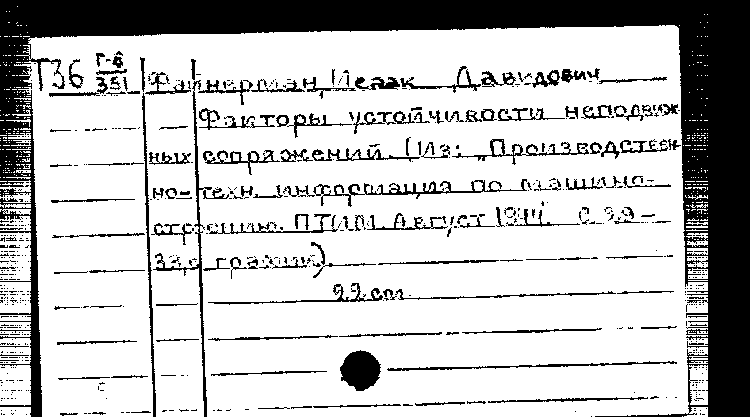 Т36 Г-6 351 Файнерман, Исаак Давидович
Факторы устойчивости неподвиж
ных сопряжений. (Из: „Производствен
но-техн. информация по машино-
строению. ПТИМ. Август 1944. С 29-
33, с график).
22 см.